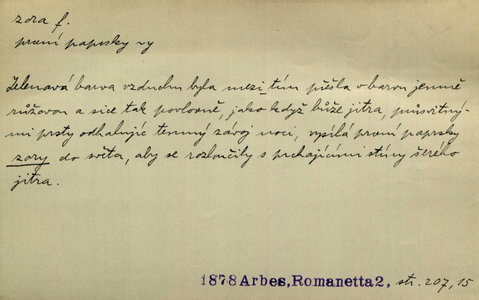 zora f.
první paprsky ~y
Zelenavá barva vzduchu byla mezi tím přešla v barvu jemně
růžovou a sice tak povlovně, jako když bůže jitra, průsvitný-
mi prsty odhalujíc temný závoj noci, vysílá první paprsky
zory do světa, aby se rozloučily s prchajícími stíny šerého
jitra.
1878 Arbes, Romanetta 2, str. 207, 15